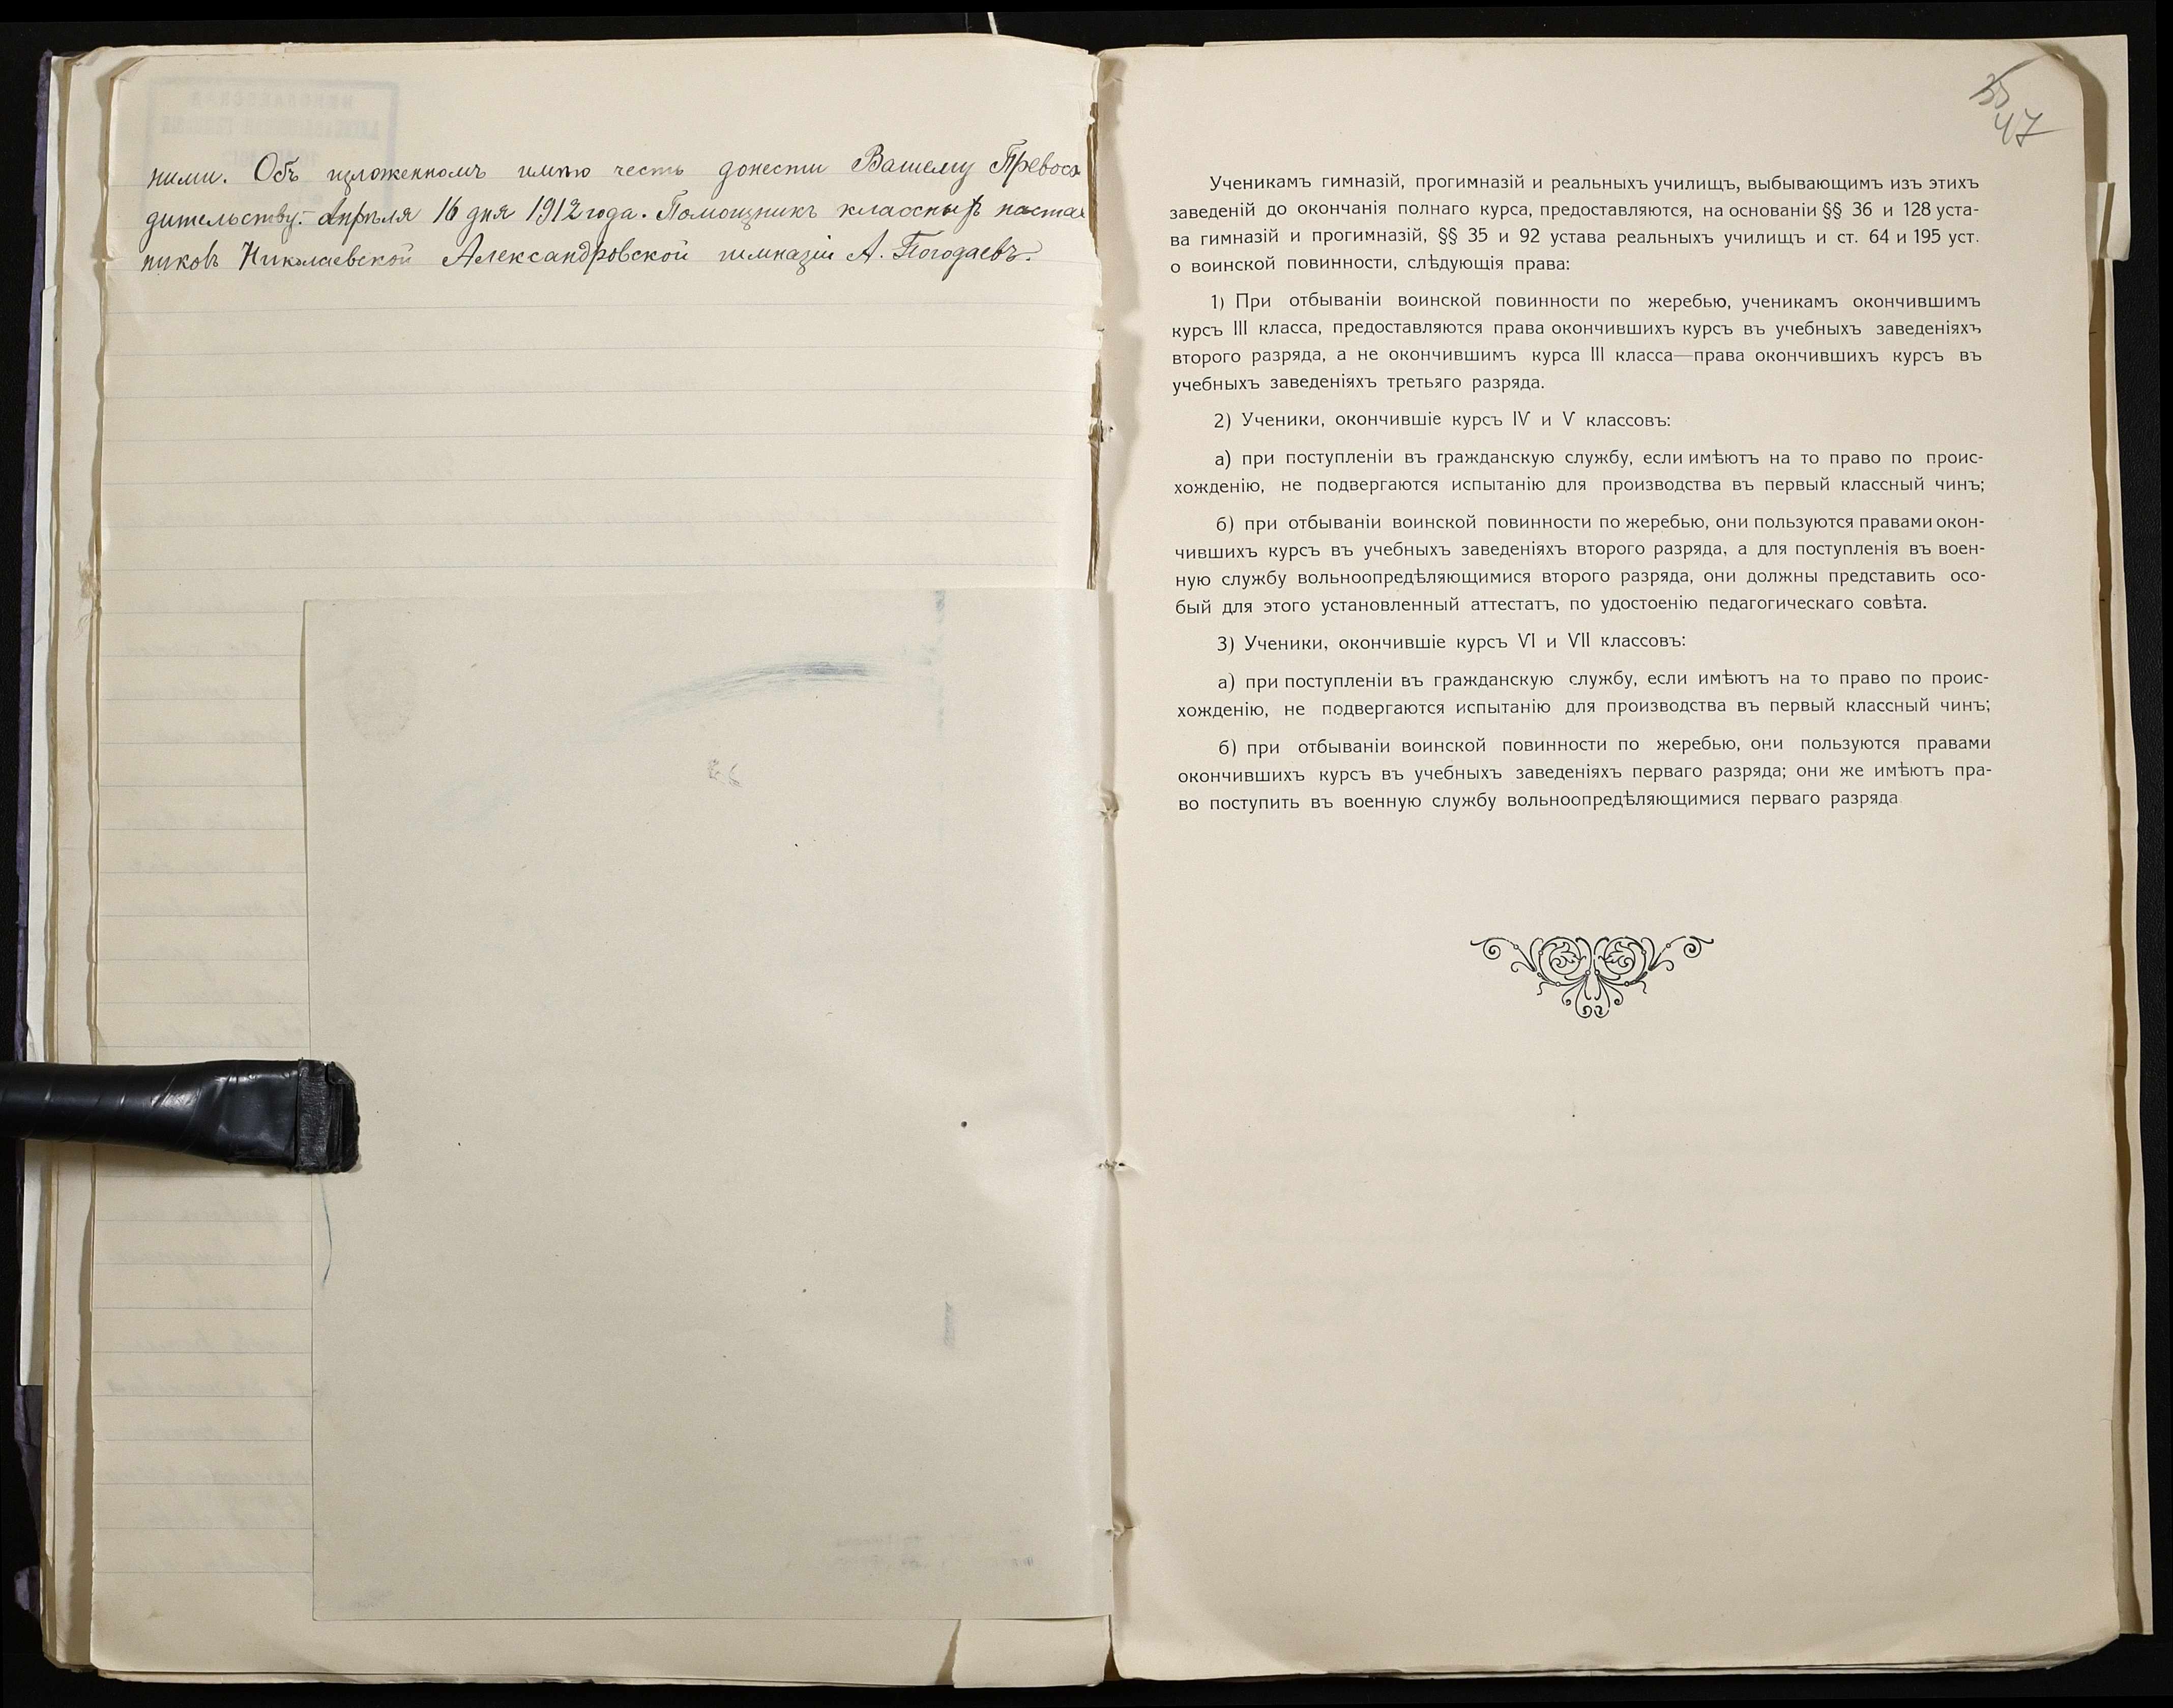 ними. Объ изложенномъ имѣю честь донести Вашему Превосхо
дительству. Апрѣля 16 дня 1912 года. Помощникъ классныхъ настав
никовъ Николаевской Александровской гимназіи А. Погодаевъ.
35
47
Ученикамъ гимназій, прогимназій и реальныхъ училищъ, выбывающимъ изъ этихъ
заведеній до окончанія полнаго курса, предоставляются, на основаніи §§ 36 и 128 уста-
ва гимназій и прогимназій, §§ 35 и 92 устава реальныхъ училищъ и ст. 64 и 195 уст.
о воинской повинности, слѣдующія права:
1) При отбываніи воинской повинности по жеребью, ученикамъ окончившимъ
курсъ III класса, предоставляются права окончившихъ курсъ въ учебныхъ заведеніяхъ
второго разряда, а не окончившимъ курса III класса—права окончившихъ курсъ въ
учебныхъ заведеніяхъ третьяго разряда.
2) Ученики, окончившіе курсъ IV и V классовъ:
а) при поступленіи въ гражданскую службу, если имѣютъ на то право по проис-
хожденію, не подвергаются испытанію для производства въ первый классный чинъ;
б) при отбываніи воинской повинности по жеребью, они пользуются правами окон-
чившихъ курсъ въ учебныхъ заведеніяхъ второго разряда, а для поступленія въ воен-
ную службу вольноопредѣляющимися второго разряда, они должны представить осо-
бый для этого установленный аттестатъ, по удостоенію педагогическаго совѣта.
3) Ученики, окончившіе курсъ VI и VII классовъ:
а) при поступленіи въ гражданскую службу, если имѣютъ на то право по проис-
хожденію, не подвергаются испытанію для производства въ первый классный чинъ;
б) при отбываніи воинской повинности по жеребью, они пользуются правами
окончившихъ курсъ въ учебныхъ заведеніяхъ перваго разряда; они же имѣютъ пра-
во поступить въ военную службу вольноопредѣляющимися перваго разряда